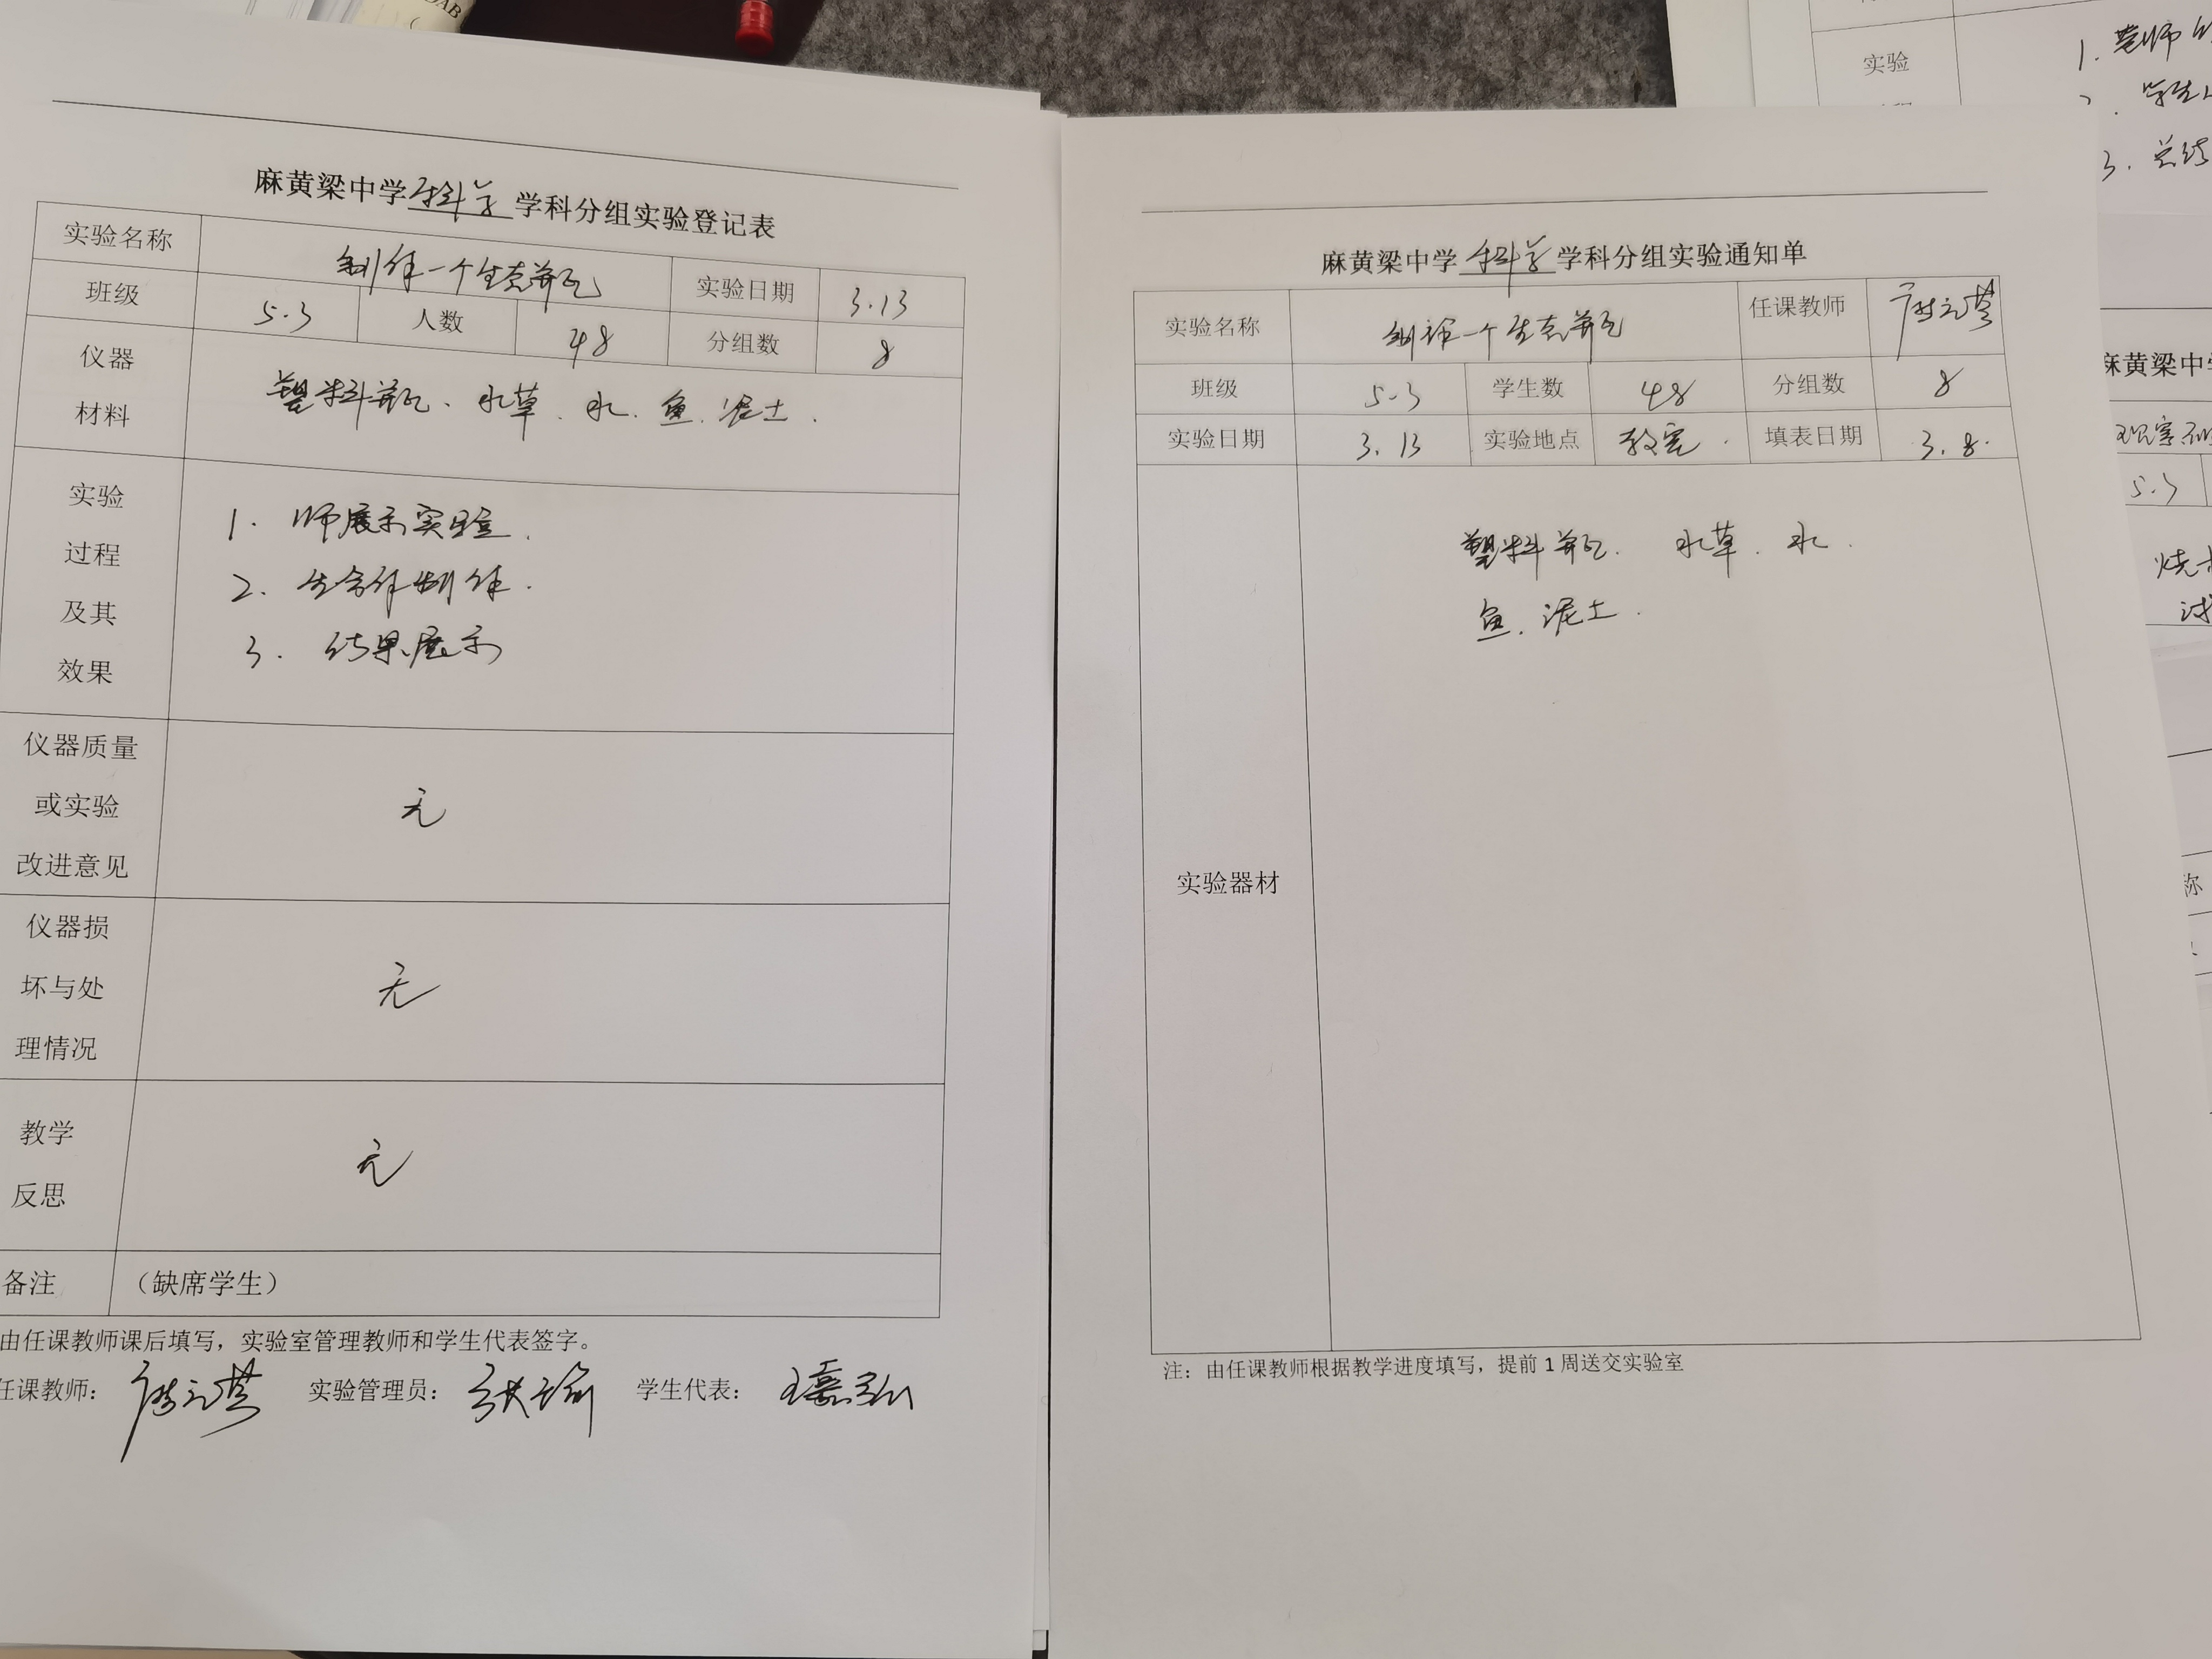 麻黄梁中学科学学科分组实验登记表
实验名称 制作一个生态瓶 实验日期 3.13
班级 5.3 人数 48 分组数 8
仪器材料 塑料瓶、水草、水、鱼、泥土.
实验过程及其效果
1. 师展示实验.
2. 生合作制作.
3. 结果展示
仪器质量或实验改进意见 无
仪器损坏与处理情况 无
教学反思 无
备注 （缺席学生）
由任课教师课后填写，实验室管理教师和学生代表签字。
任课教师： 实验管理员： 学生代表：
麻黄梁中学科学学科分组实验通知单
实验名称 制作一个生态瓶 任课教师
班级 5.3 学生数 48 分组数 8
实验日期 3.13 实验地点 教室. 填表日期 3.8.
实验器材
塑料瓶. 水草. 水.
鱼. 泥土.
注：由任课教师根据教学进度填写，提前1周送交实验室
实验
1. 老师
2. 学生
3. 总结
麻黄梁中
5.3
称